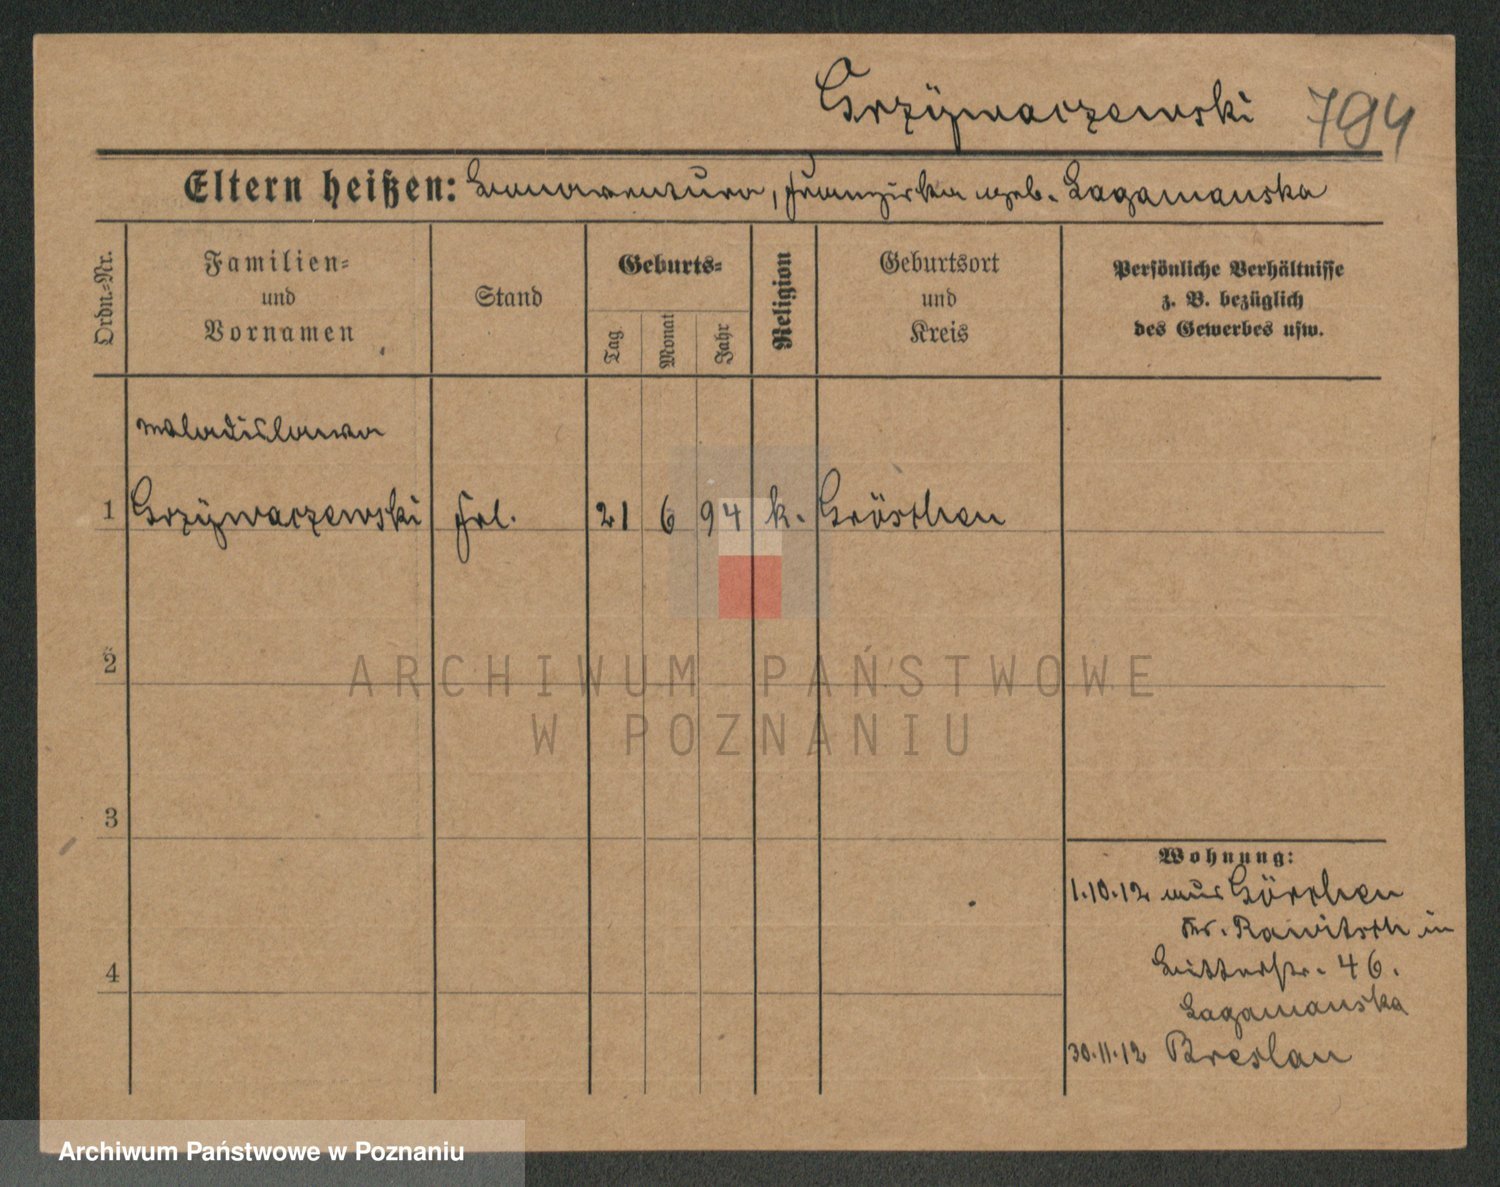 Grzÿwaczewski 794
Eltern heißen: Bonaventura, Franziska geb. Lagamanska
Ordn.=Nr.
Familien=
und
Vornamen
Stand
Geburts=
Tag
Monat
Jahr
Religion
Geburtsort
und
Kreis
Persönliche Verhältnisse
z. B. bezüglich
des Gewerbes usw.
Wladislawa
1 Grzÿwaczewski Frl. 21 6 94 k. Görchen
2
3
4
Wohnung:
1.10.12 aus Görchen
Kr. Rawitsch in
Ritterstr. 46.
Lagamanska
30.11.12 Breslau
ARCHIWUM PAŃSTWOWE
W POZNANIU
Archiwum Państwowe w Poznaniu